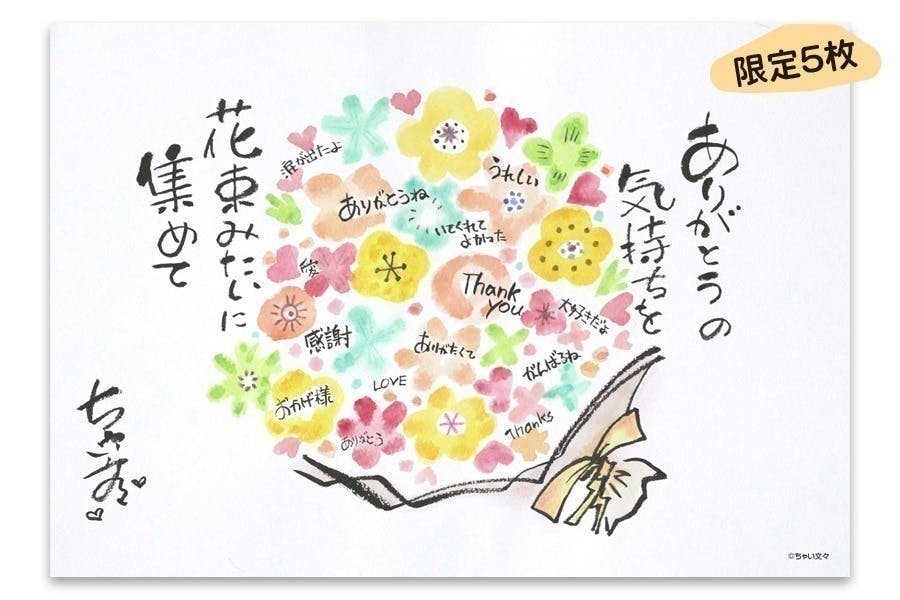 限定5枚
ありがとうの
気持ちを
花束みたいに
集めて
涙が出たよ
ありがとうね
うれしい
いてくれて
よかった
愛
Thank
you
大好きだよ
感謝
ありがたくて
がんばるね
LOVE
おかげ様
ありがとう
Thanks
©ちゃい文々